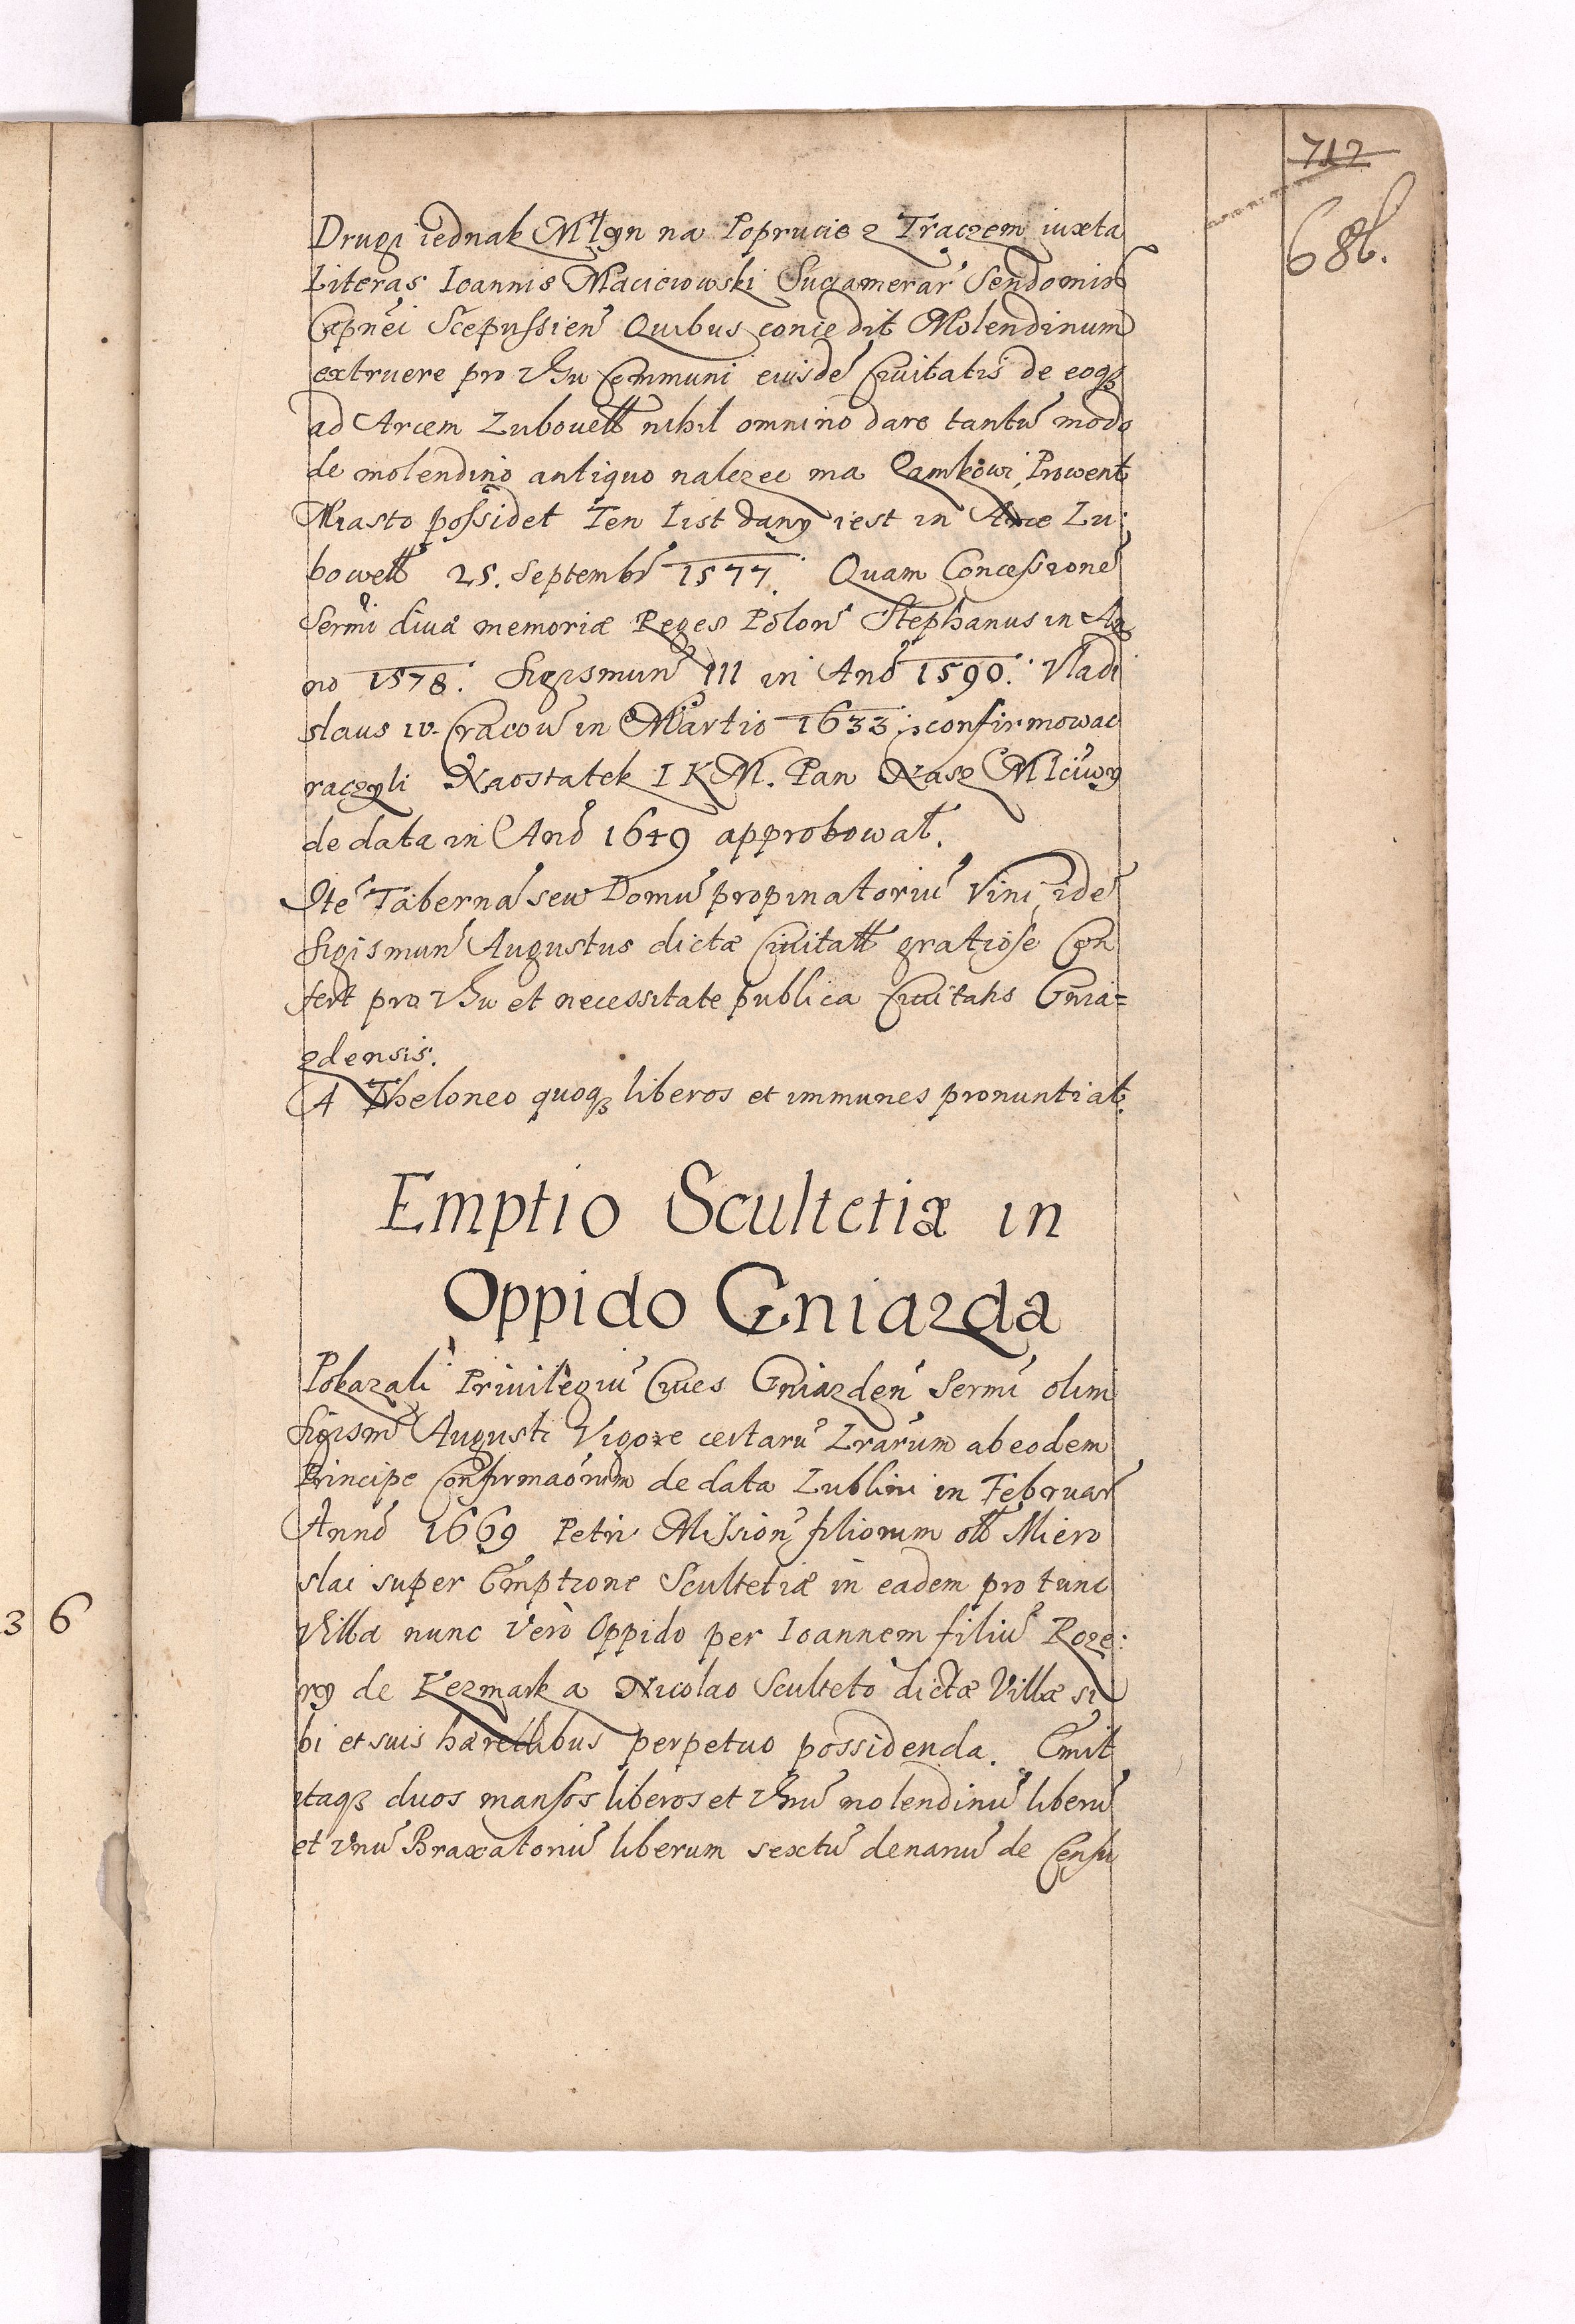 712
68b.
Drugi iednak Młyn na Popracie z Traczem iuxta
Literas Ioannis Macieiowski Sucamerar̃ Sendomir̃
Capn̄ei Scepussien̄ Quibus concedit Molendinum
extruere pro Vsu Communi eiusdē Ciuitatis de eoqꝫ
ad Arcem Lubouełł nihil omnino dare tantū modo
de molendino antiquo nalezec ma Zamkowi, Prowent
Miasto possidet Ten List dany iest in Arce Lu:
bowełł 25. Septembr̃ 1577. Quam Concessionē
Sermi diuæ memoriæ Reges Polon̄ Stephanus in An
no 1578. Sigismun̄ III in Anō 1590. Vladi
slaus IV. Cracou in Martio 1633; confirmowac
raczyli Naostatek I K M. Pan Nasz Mlciwy
de data in Anō 1649 approbował.
Itē Tabernā seu Domū propinatoriū Vini idē
Sigismun̄ Augustus dictæ Ciuitałł gratiose Con
fert pro Vsu et necessitate publica Ciuitatis Gnia=
zdensis.
A Theloneo quoqꝫ liberos et immunes pronuntiat.
Emptio Scultetiæ in
Oppido Gniazda
Pokazali Priuilegiū Ciues Gniazden̄ Sermi olim
Sigism̄ Augusti Vigore certarū Lrarum ab eodem
Principe Confirmaōrum de data Lublini in Februar̃
Annō 1669 Petri Mission̄ filiorum ołł Miero
slai super Emptione Scultetiæ in eadem pro tunc
Villa nunc Vero Oppido per Ioannem filiū Roze:
ry de Kezmark a Nicolao Sculteto dictæ Villæ si
bi et suis hæredibus perpetuo possidenda. Emit
itaqꝫ duos mansos liberos et Vnū molendinū liberū
et Vnū Braxatoriū liberum sextū denariū de Censu
36